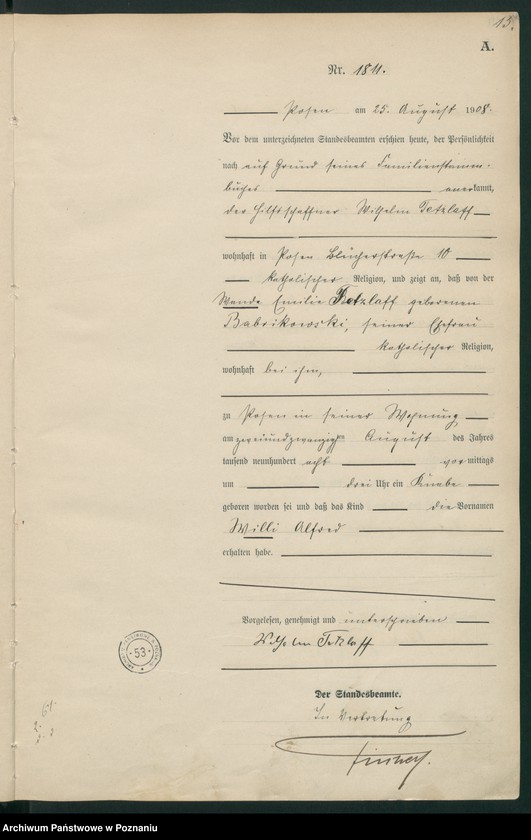 13.
A.
Nr. 1811.
Posen am 25. August 1908.
Vor dem unterzeichneten Standesbeamten erschien heute, der Persönlichkeit
nach auf Grund seines Familienstamm-
buches anerkannt,
der Hilfsschaffner Wilhelm Tetzlaff
wohnhaft in Posen Blücherstraße 10
katholischer Religion, und zeigt an, daß von der
Wanda Emilie Tetzlaff geborenen
Babrikowski, seiner Ehefrau
katholischer Religion,
wohnhaft bei ihm,
zu Posen in seiner Wohnung
am zweiundzwanzigsten August des Jahres
tausend neunhundert acht vormittags
um drei Uhr ein Knabe
geboren worden sei und daß das Kind die Vornamen
Willi Alfred
erhalten habe.
Vorgelesen, genehmigt und unterschrieben
Wilhelm Tetzlaff
53
Der Standesbeamte.
In Vertretung
Archiwum Państwowe w Poznaniu